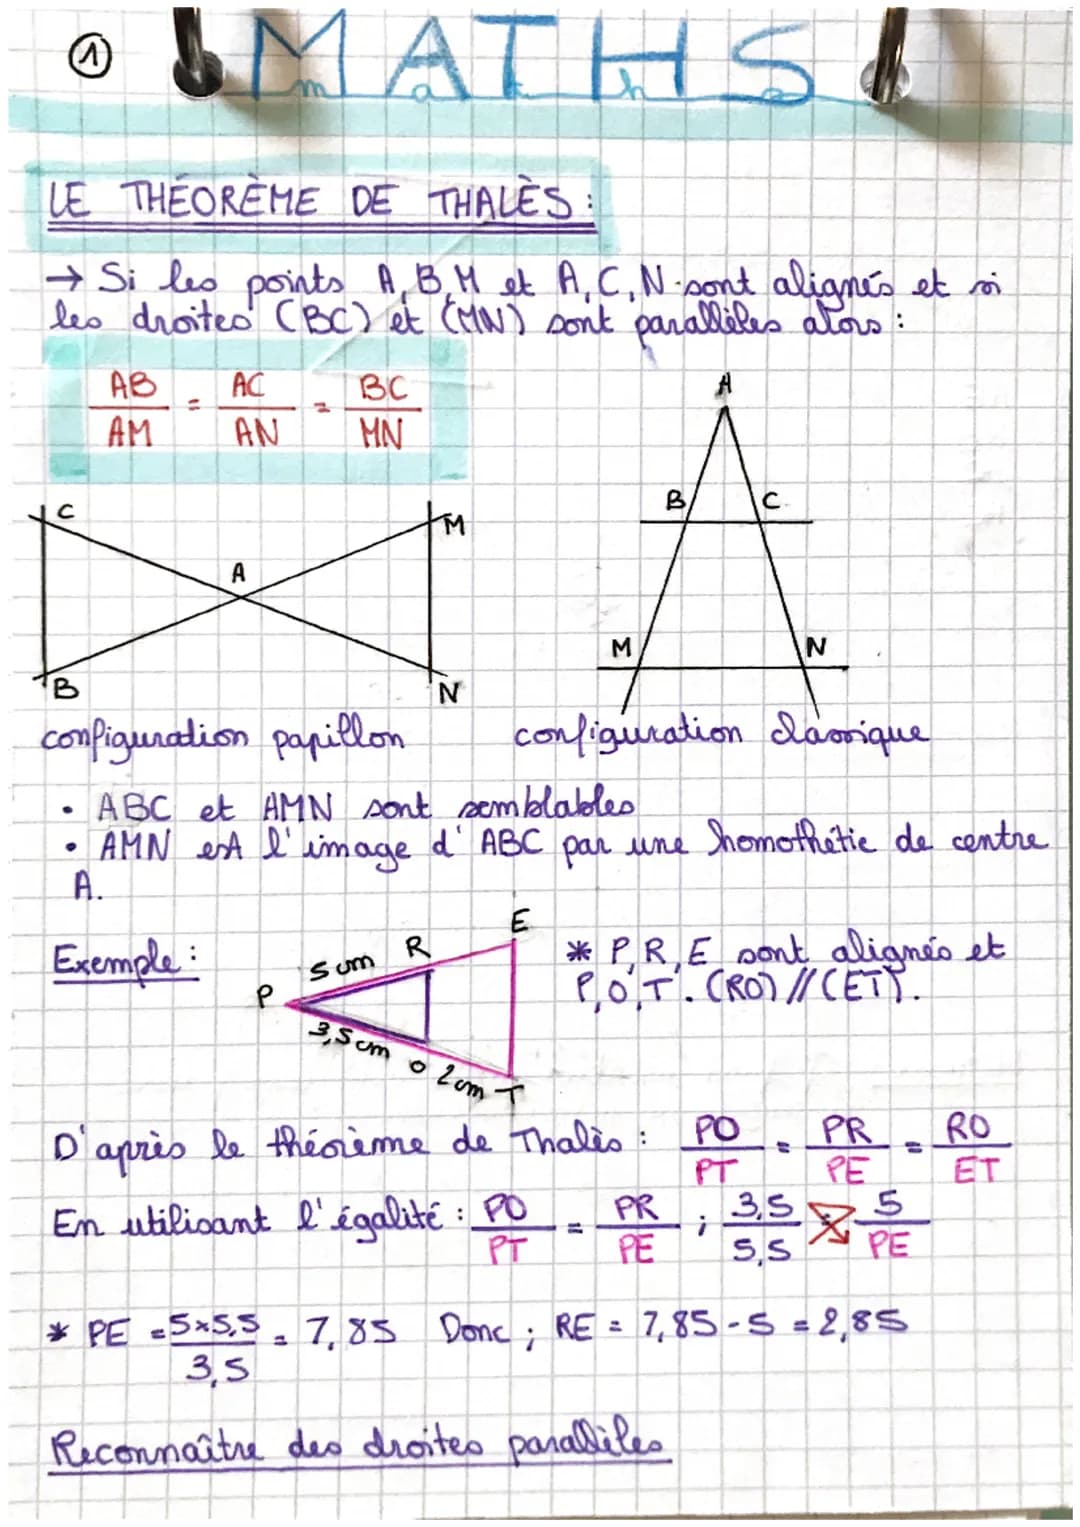 ①
MATHS
maths
LE THÉORÈME DE THALÈS :
→ Si les points A, B, M et A, C, N sont alignés et si
les droites (BC) et (MN) sont parallèles alors :
AB/AM = AC/AN = BC/MN
A
B C
M N
C M
A
B N
configuration papillon configuration classique
• ABC et AMN sont semblables
• AMN est l'image d'ABC par une homothétie de centre
A.
Exemple :
P 5 cm R E
3,5 cm O 2 cm T
* P, R, E sont alignés et
P, O, T. (RO) // (ET).
D'après le théorème de Thalès : PO/PT = PR/PE = RO/ET
En utilisant l'égalité : PO/PT = PR/PE ; 3,5/5,5 = 5/PE
* PE = 5×5,5/3,5 = 7,85 Donc ; RE = 7,85 - 5 = 2,85
Reconnaître des droites parallèles